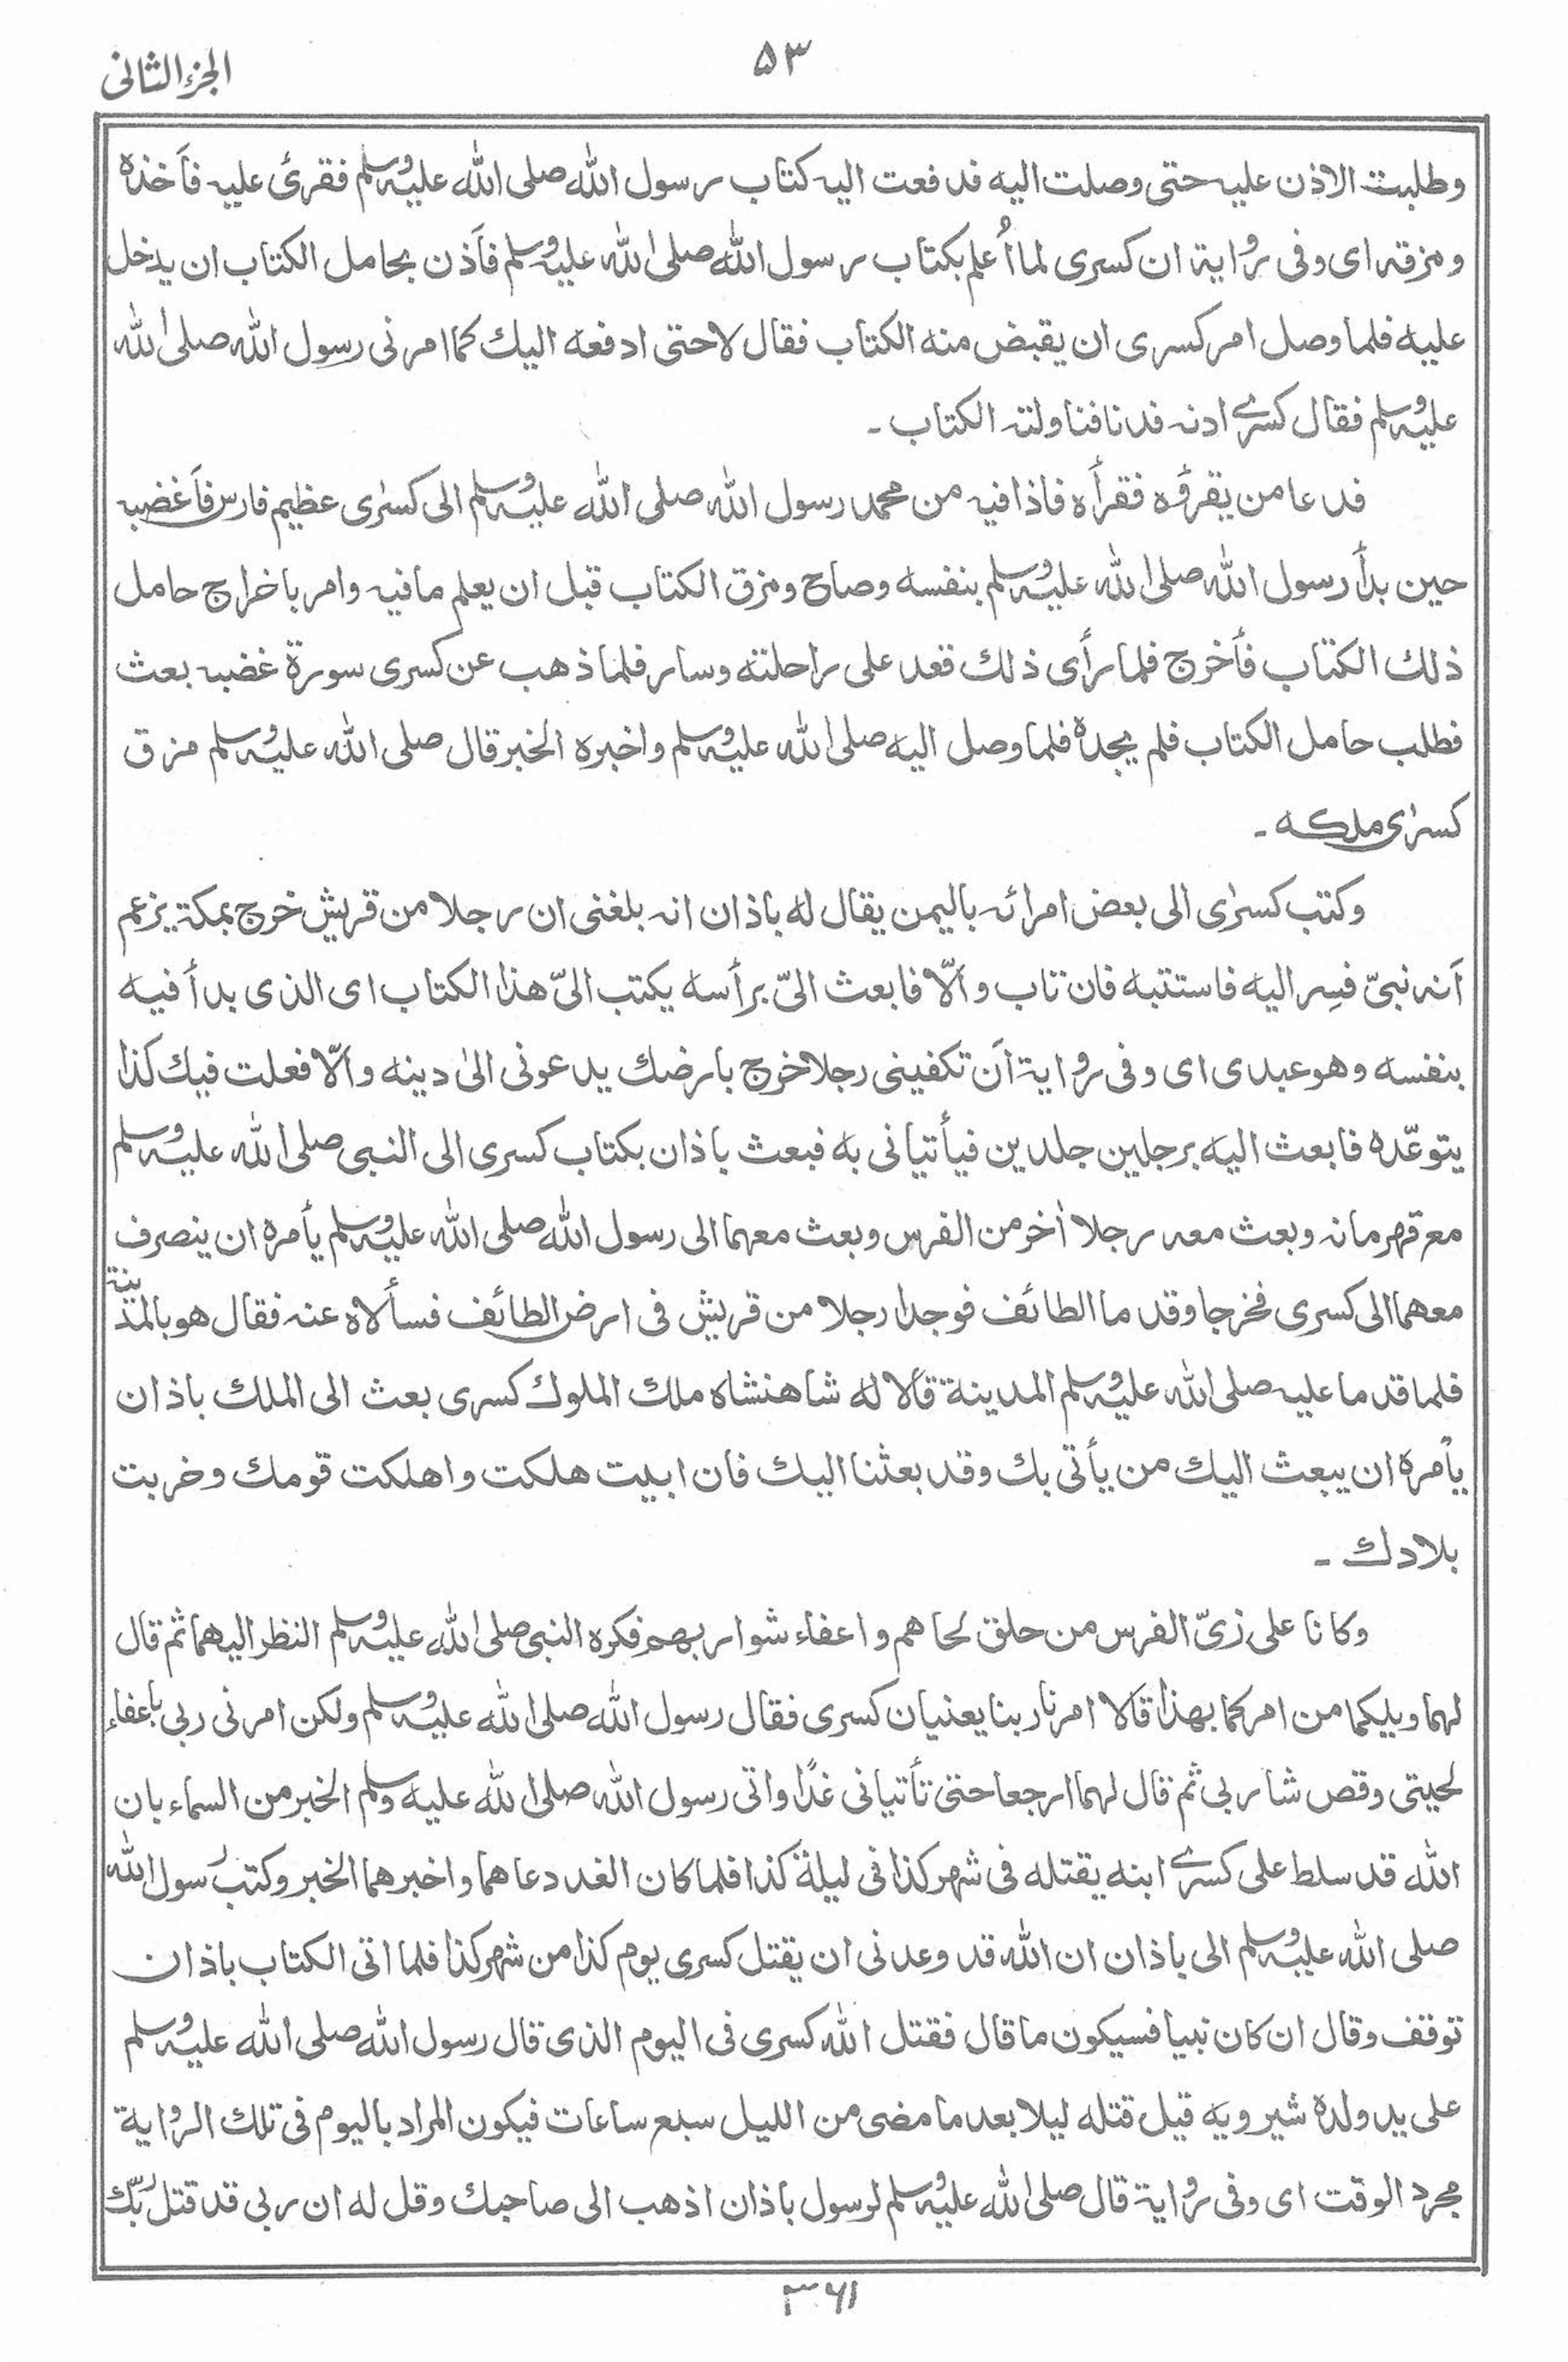 الجزء الثانی
۵۳
وطلبت الاذن علیه حتی وصلت الیه فدفعت الیه کتاب رسول الله صلی الله علیه وسلم فقرئ علیه فأخذه
ومزقه ای وفی روایة ان کسری لما أُعلم بکتاب رسول الله صلی الله علیه وسلم فأذن بحامل الکتاب ان یدخل
علیه فلما وصل امر کسری ان یقبض منه الکتاب فقال لا حتی ادفعه الیك کما امرنی رسول الله صلی الله
علیه وسلم فقال کسرے ادنه فدنا فناولته الکتاب ۔
فدعا من یقرؤه فقرأه فاذا فیه من محمد رسول الله صلی الله علیه وسلم الی کسرٰی عظیم فارس فأغضبه
حین بدأ رسول الله صلی الله علیه وسلم بنفسه وصاح ومزق الکتاب قبل ان یعلم ما فیه وامر باخراج حامل
ذلك الکتاب فأخرج فلما رأی ذلك قعد علی راحلته وسار فلما ذهب عن کسری سورة غضبه بعث
فطلب حامل الکتاب فلم یجده فلما وصل الیه صلی الله علیه وسلم واخبره الخبر قال صلی الله علیه وسلم مزق
کسرٰی ملکه ۔
وکتب کسرٰی الی بعض امرائه بالیمن یقال له باذان انه بلغنی ان رجلا من قریش خرج بمکة یزعم
أنه نبیّ فسِر الیه فاستتبه فان تاب والّا فابعث الیّ برأسه یکتب الیّ هذا الکتاب ای الذی بدأ فیه
بنفسه وهو عبدی ای وفی روایة أن تکفینی رجلا خرج بارضك یدعونی الیٰ دینه والّا فعلت فیك کذا
یتوعّده فابعث الیه برجلین جلدین فیأتیانی به فبعث باذان بکتاب کسری الی النبی صلی الله علیه وسلم
مع قهرمانه وبعث معه رجلا اٰخر من الفرس وبعث معهما الی رسول الله صلی الله علیه وسلم یأمره ان ینصرف
معهما الی کسری فخرجا وقدما الطائف فوجدا رجلا من قریش فی ارض الطائف فسألاه عنه فقال هو بالمدینة
فلما قدما علیه صلی الله علیه وسلم المدینة قالا له شاهنشاه ملك الملوك کسری بعث الی الملك باذان
یأمره ان یبعث الیك من یأتی بك وقد بعثنا الیك فان ابیت هلکت واهلکت قومك وخربت
بلادك ۔
وکانا علی زیّ الفرس من حلق لحاهم واعفاء شواربهم فکره النبی صلی الله علیه وسلم النظر الیهما ثم قال
لهما ویلکما من امرکما بهذا قالا امرنا ربنا یعنیان کسری فقال رسول الله صلی الله علیه وسلم ولکن امرنی ربی باعفاء
لحیتی وقص شاربی ثم قال لهما ارجعا حتی تأتیانی غدًا واتی رسول الله صلی الله علیه وسلم الخبر من السماء بان
الله قد سلط علی کسرے ابنه یقتله فی شهر کذا فی لیلة کذا فلما کان الغد دعاهما واخبرهما الخبر وکتب رسول الله
صلی الله علیه وسلم الی باذان ان الله قد وعدنی ان یقتل کسری یوم کذا من شهر کذا فلما اتی الکتاب باذان
توقف وقال ان کان نبیا فسیکون ما قال فقتل الله کسری فی الیوم الذی قال رسول الله صلی الله علیه وسلم
علی ید ولده شیرویه قیل قتله لیلا بعد ما مضی من اللیل سبع ساعات فیکون المراد بالیوم فی تلك الروایة
مجرد الوقت ای وفی روایة قال صلی الله علیه وسلم لرسول باذان اذهب الی صاحبك وقل له ان ربی قد قتل ربّك
۳۶۱